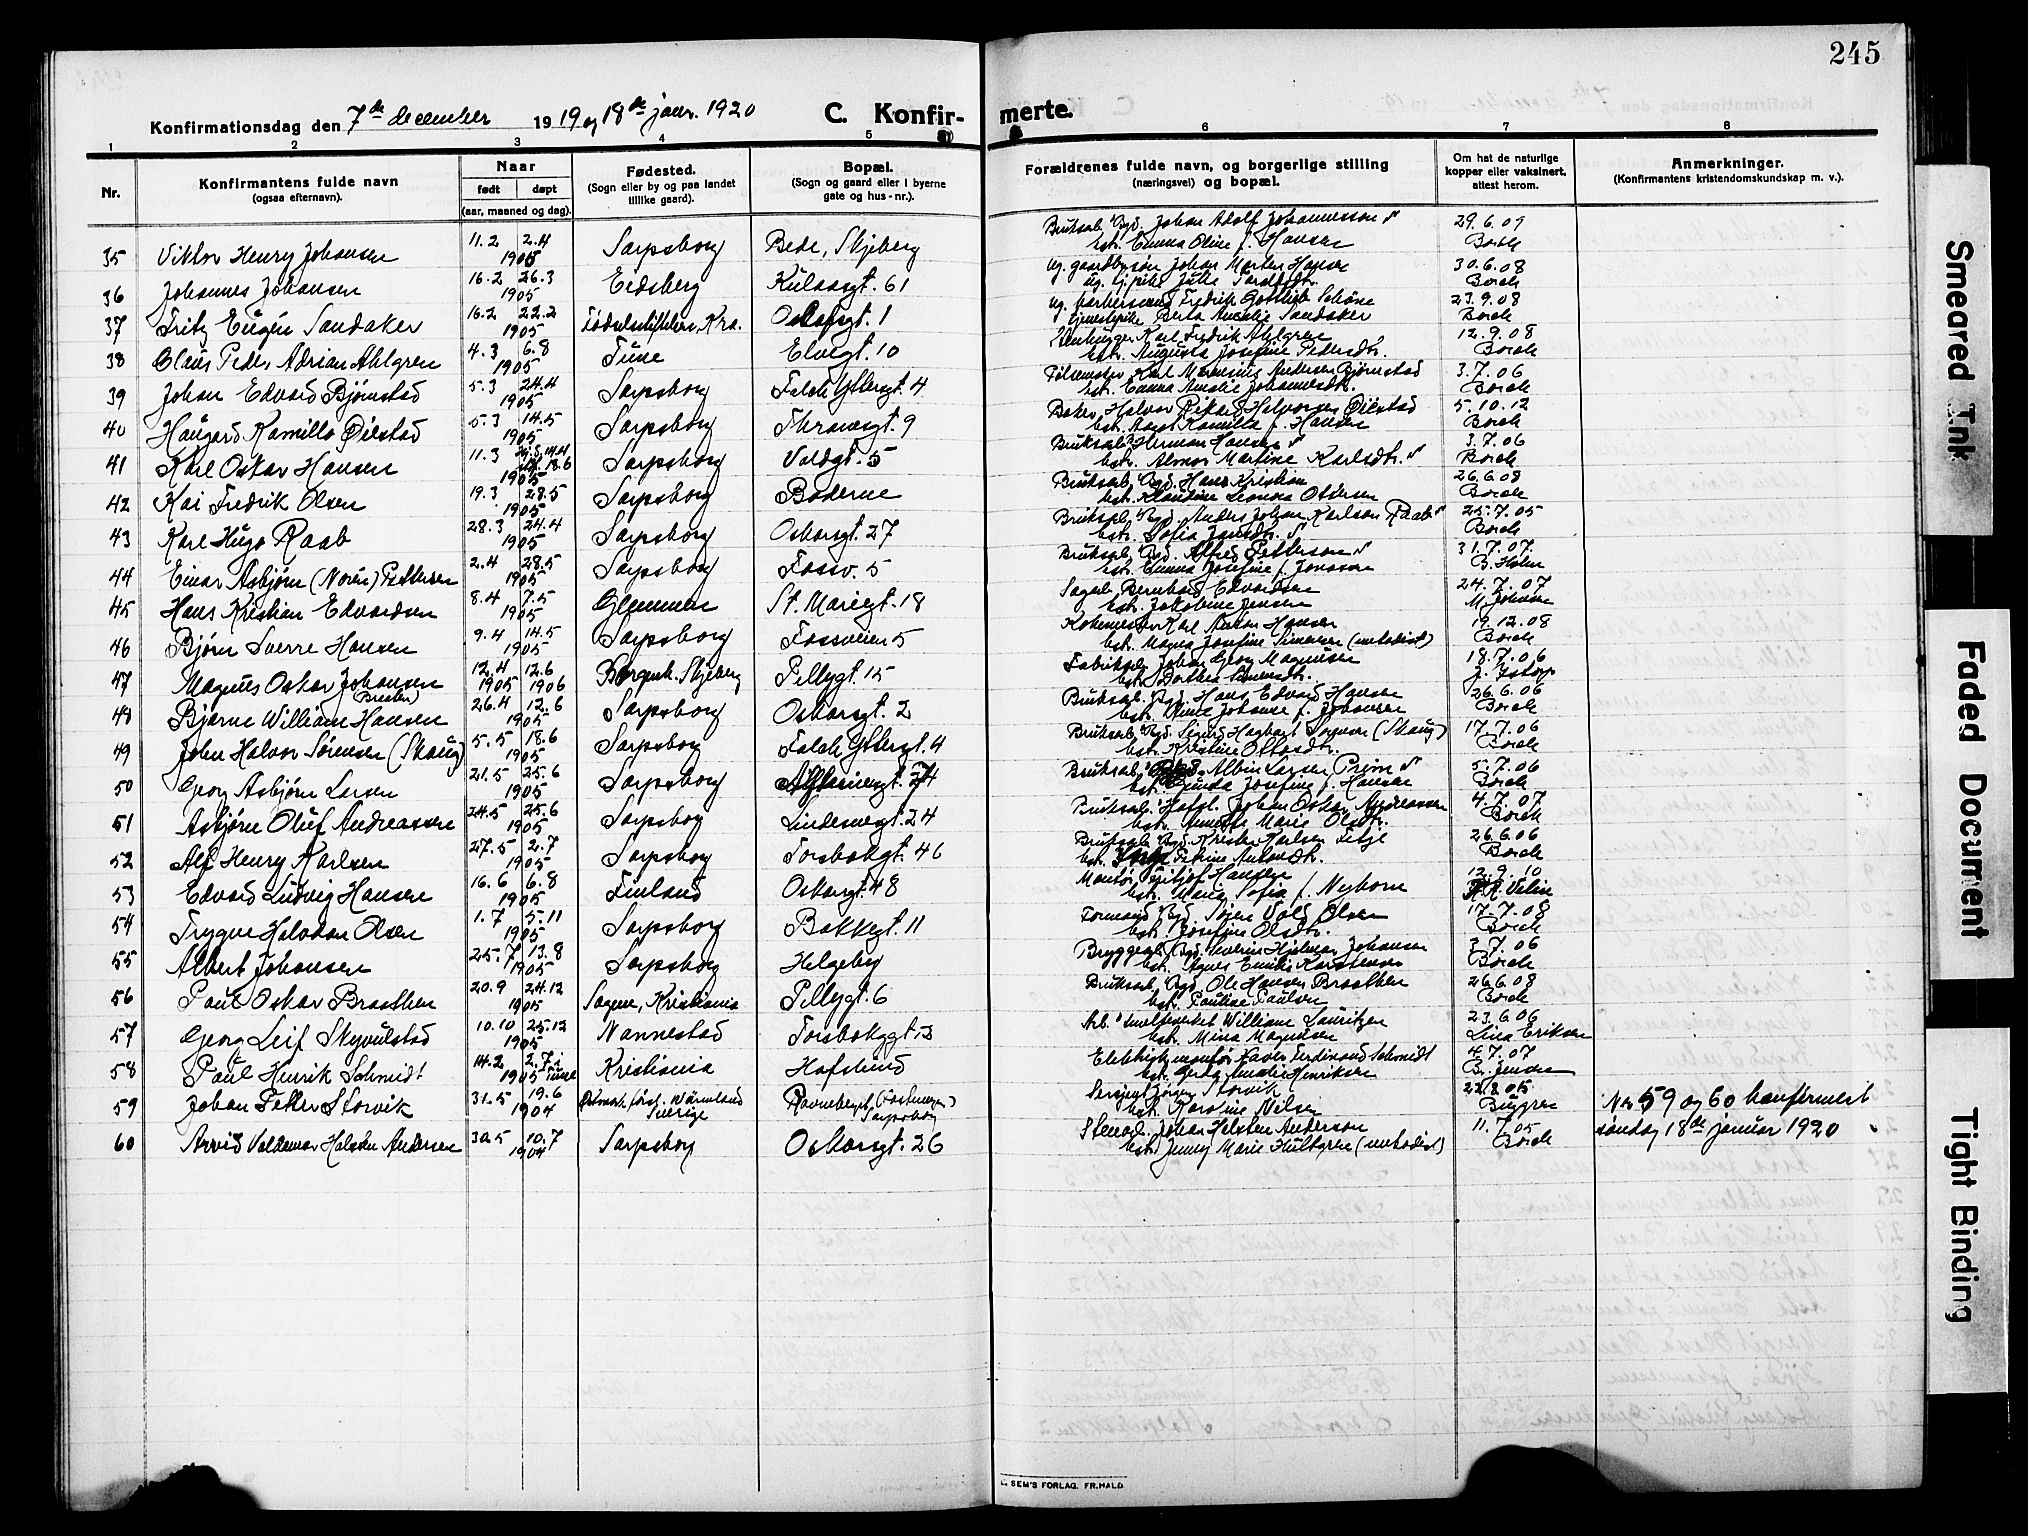 245
Konfirmationsdag den 7de december 1919 og 18de janr. 1920 C. Konfirmerte.
1 2 3 4 5 6 7 8
Nr. Konfirmantens fulde navn (ogsaa efternavn). Naar født døpt (aar, maaned og dag). Fødested. (Sogn eller by og paa landet tillike gaard). Bopæl. (Sogn og gaard eller i byerne gate og hus-nr.). Forældrenes fulde navn, og borgerlige stilling (næringsvei) og bopæl. Om hat de naturlige kopper eller vaksinert, attest herom. Anmerkninger. (Konfirmantens kristendomskundskap m. v.).
35 Viktor Henry Johansen 11.2 2.4 1905 Sarpsborg Bede, Skjeberg Bruksarb. Bgd. Johan Adolf Johannesson 29.6.07
bstr. Emma Oline f. Hansen Borch
36 Johannes Johansen 16.2 26.3 1905 Eidsberg Kulaasgt. 61 ug. gaardbr.søn Johan Morten Hansen 30.6.08
Borch
37 Fritz Eugen Sandaker 16.2 22.2 1905 Fødselsstiftelsen, Kra. Oskarsgt. 1 ug. barbersvend Fredrik Gottlieb Schöne 23.9.08
tjenestepike Berta Amalie Sandaker Borch
38 Claus Peder Adrian Ahlgren 4.3 6.8 1905 Tune Elvegt. 10 Stenhugger Karl Fredrik Ahlgren 12.9.08
bstr. Augusta Josefine Pedersdtr. Borch
39 Johan Edvard Bjørnstad 5.3 24.4 1905 Sarpsborg Falch Yttersgt. 4 Karl Marensius Andersen Bjørnstad 3.7.06
bstr. Emma Amalie Johannesdtr. Borch
40 Haugard Kamillo Øilestad 5.3 14.5 1905 Sarpsborg Thranesgt. 9 Baker Halvor Rikard Halvorsen Øilestad 5.10.12
bstr. Aagot Kamilla f. Hansen Borch
41 Karl Oskar Hansen 11.3 18.6 1905 Sarpsborg Voldgt. 5 Bruksarb. Herman Hansen 3.7.06
bstr. Almar Martine Karlsdtr. Borch
42 Kai Fredrik Olsen 19.3 28.5 1905 Sarpsborg Baderne Bruksarb. Bgd. Hans Kristian 26.6.08
bstr. Klaudine Leonora Ottersen Borch
43 Karl Hugo Raab 28.3 24.4 1905 Sarpsborg Oskarsgt. 27 Bruksarb. Bgd. Anders Johan Karlson Raab 25.7.05
bstr. Sofia Jansdtr. Borch
44 Einar Asbjørn (Norén) Pettersen 2.4 28.5 1905 Sarpsborg Fossv. 5 Bruksarb. Bgd. Alfred Petterson 31.7.07
bstr. Emma Josefine f. Jonsson B. Holm
45 Hans Kristian Edvardsen 8.4 7.5 1905 Glemmen St. Mariegt. 18 Sagarb. Bernhard Edvardsen 24.7.07
bstr. Jakobine Jensen M. Johnsen
46 Bjørn Sverre Hansen 9.4 14.5 1905 Sarpsborg Fossveien 5 Karl Anton Hansen 19.12.08
bstr. Magna Josefine Simensen (metodist) Borch
47 Magnus Oskar Johansen 12.4 1905 12.6 1906 Borgenh. Skjeberg Pellygt. 15 Fabrikarb. Johan Georg Magnussen 18.7.06
bstr. Dorthea
48 Bjarne William Hansen 26.4 12.6 1905 Sarpsborg Oskarsgt. 2 Bruksarb. Bgd. Hans Edvard Hansen 26.6.06
bstr. Mina Johanne f. Johansen Borch
49 John Halvor Sørensen (Skaug) 5.5 18.6 1905 Sarpsborg Falch Yttersgt. 4 Bruksarb. Bgd. Sigurd Hagbart Sørensen (Skaug) 17.7.06
bstr. Kristine Ottosdtr. Borch
50 Georg Asbjørn Larsen 21.5 25.6 1905 Sarpsborg Bruksarb. Albin Larsen Prim 5.7.06
bstr. Gunda Josefine f. Hansen Borch
51 Asbjørn Oluf Andreassen 24.5 25.6 1905 Sarpsborg Lindemegt. 24 Bruksarb. Hafsl. Johan Oskar Andreassen 4.7.07
bstr. Annette Marie Olsdtr. Borch
52 Alf Henry Karlsen 27.5 2.7 1905 Sarpsborg Torsbekkgt. 46 Bruksarb. Bgd. Kristen Karlsen Fetje 26.6.06
bstr. Petrine Antonsdtr. Borch
53 Edvard Ludvig Hansen 16.6 6.8 1905 Finland Oskarsgt. 48 Montør Fritjof Hansen 12.9.10
bstr. Maria Sofia f. Nyborn
54 Trygve Halvdan Olsen 1.7 5.11 1905 Sarpsborg Bakkegt. 11 Formand Bgd. Søren Vold Olsen 17.7.08
bstr. Josefine Olsdtr. Borch
55 Albert Johansen 25.7 13.8 1905 Sarpsborg Helgeby Bryggearb. Bgd. Severin Hjelmar Johansen 3.7.06
bstr. Agnes Emilie Karstensen Borch
56 Paul Oskar Braathen 20.9 24.12 1905 Sagene, Kristiania Pellygt. 6 Bruksarb. Bgd. Ole Hansen Braathen 26.6.08
bstr. Pauline Paulsen Borch
57 Georg Leif Skyvulstad 10.10 25.12 1905 Nannestad Torsbekkgt. Arb. Smelteverket William Lauritzen 23.6.06
bstr. Mina Magnussen Lina Eriksen
58 Paul Henrik Schmidt 14.2 2.7 i 1905 Tune Kristiania Hafslund Elektrikmontør Xaver Ferdinand Schmidt 4.7.07
bstr. Gerda Amalie Henriksen B. Jensen
59 Johan Petter Storvik 31.5 19.6 1904 Östmark förs. Värmland Sverige Ravneberget (Fastingen) Sarpsborg Sersjent Jørgen Storvik
bstr. Karoline Nilsen Bugges Nr 59 og 60 konfirmert
60 Arvid Valdemar Halsten Andersen 30.5 10.7 1904 Sarpsborg Oskarsgt. 26 Johan Halsten Anderson 11.7.05 søndag 18de januar 1920
bstr. Jenny Marie Hultgren (metodist) Borch
E. SEM'S FORLAG, FR.HALD
Smeared Ink
Faded Document
Tight Binding